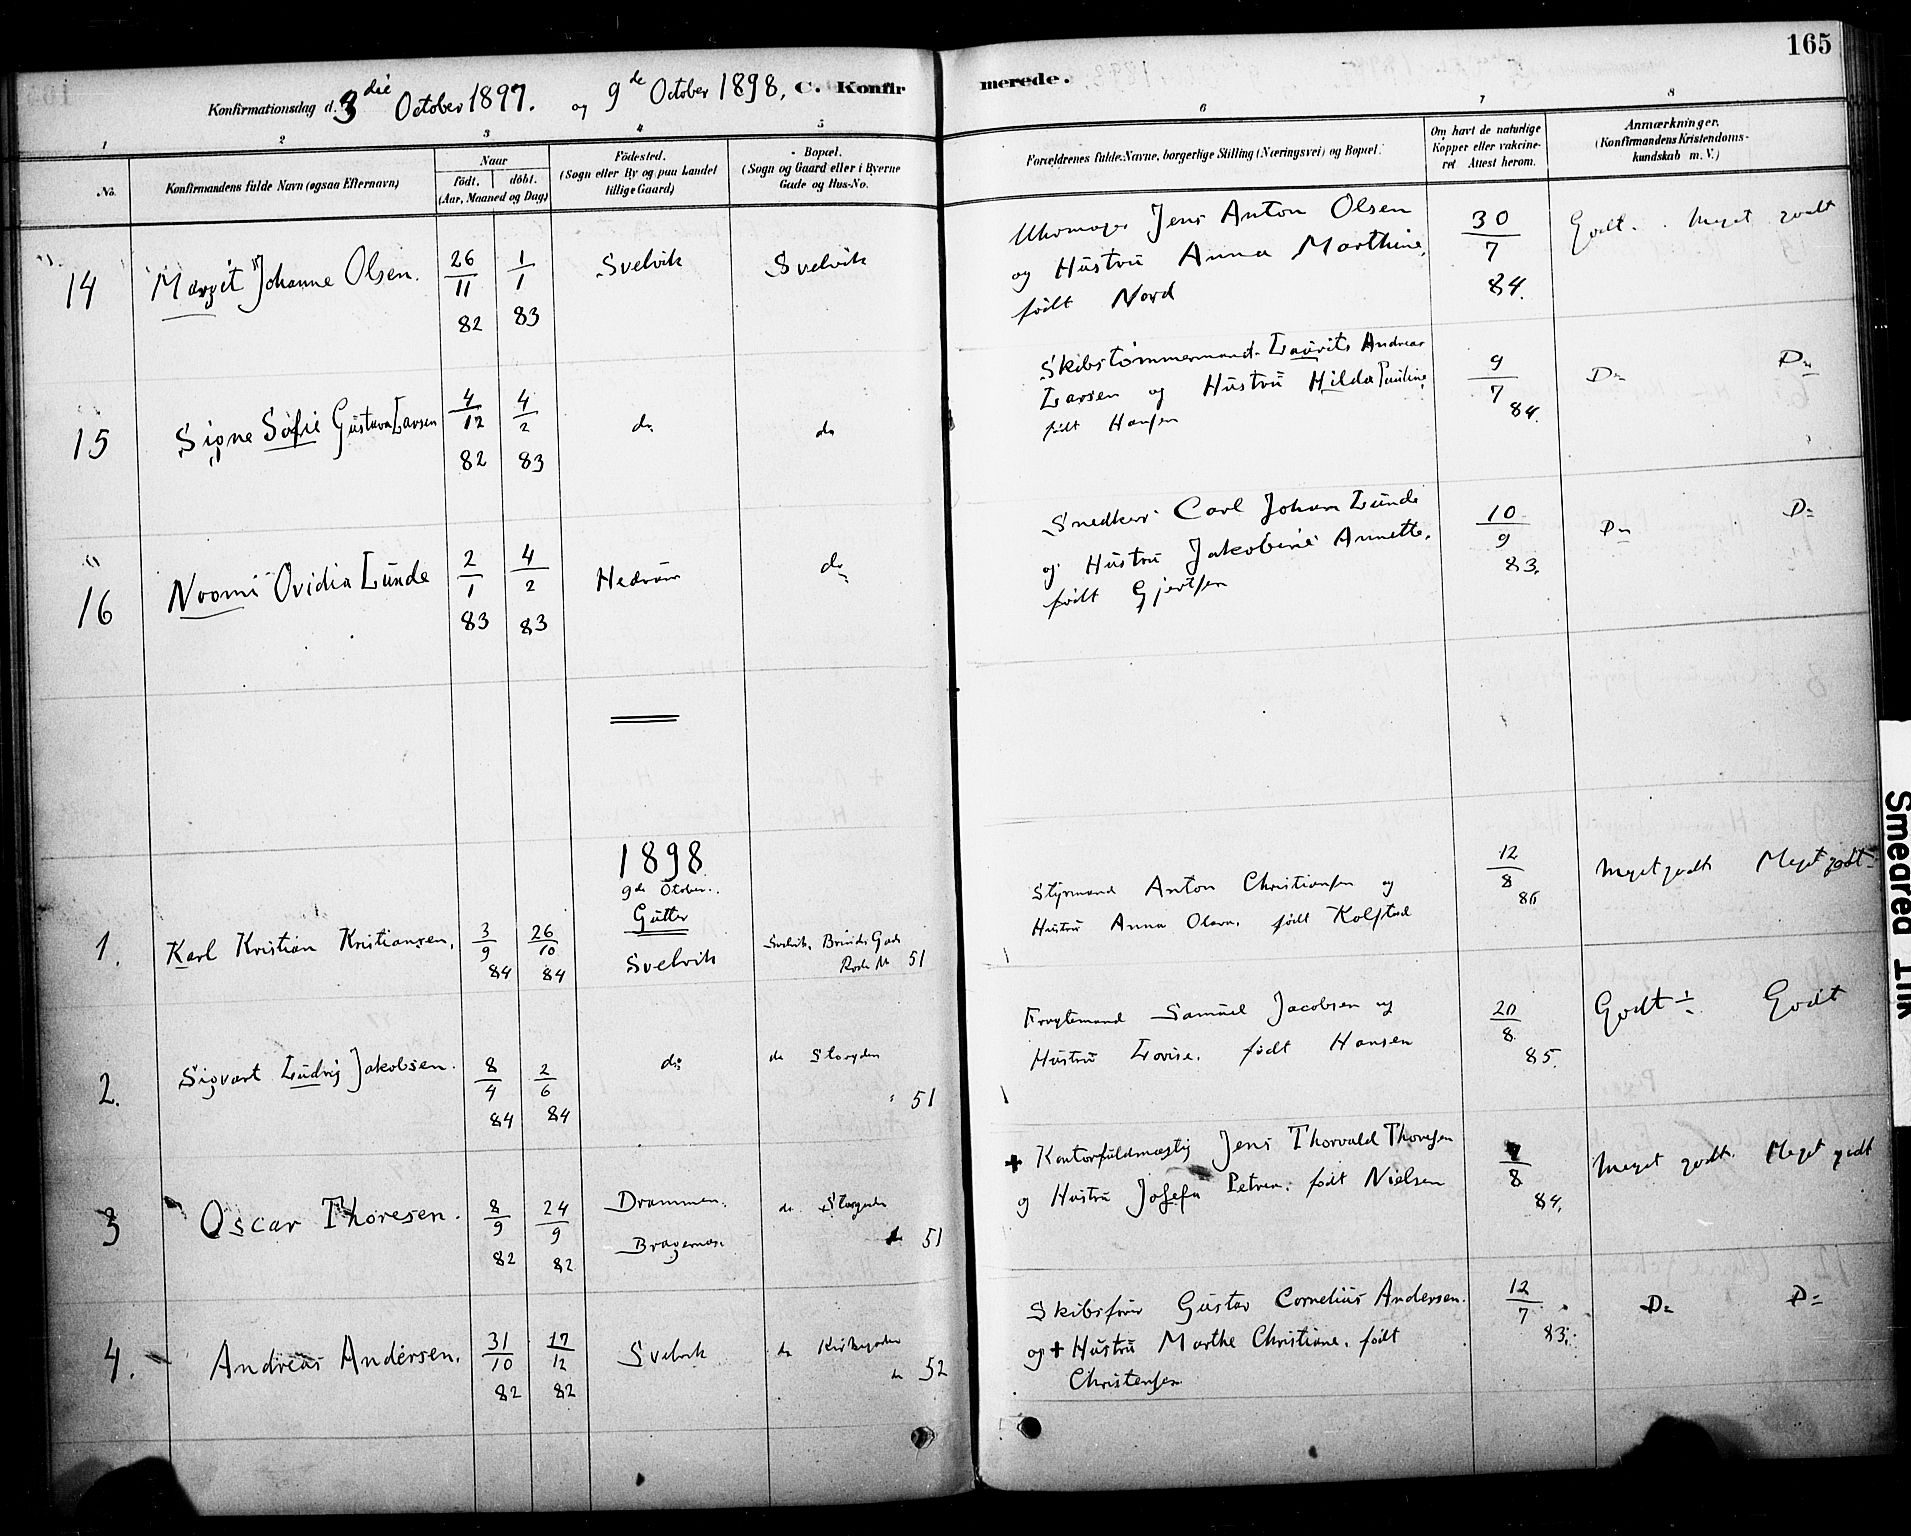 165
Konfirmationsdag d. 3die October 1897. og 9de October 1898, C. Konfirmerede.
1 2 3 4 5 6 7 8
No. Konfirmandens fulde Navn (ogsaa Efternavn)
Naar
født. døbt.
(Aar, Maaned og Dag)
Fødested.
(Sogn eller By og paa Landet
tillige Gaard)
Bopæl.
(Sogn og Gaard eller i Byerne
Gade og Hus-No.
Forældrenes fulde Navne, borgerlige Stilling (Næringsvei) og Bopæl.
Om havt de naturlige
Kopper eller vakcineret
Attest herom.
Anmærkninger.
(Konfirmandens Kristendomskundskab
m. V.)
14 Margit Johanne Olsen. 26/11 82 1/1 83 Svelvik Svelvik
Jens Anton Olsen
og Hustru Anna Marthine,
født Nord
30/7 84. Godt. Meget godt
15 Signe Sofie Gustava Larsen 4/12 82 4/2 83 do do
Skibstømmermand Laurits Andreas
Larsen og Hustru Hilda Pauline
født Hansen
9/7 84. Do Do
16 Noomi Ovidia Lunde 2/1 83 4/2 83 Hedrum do
Snedker Carl Johan Lunde
og Hustru Jakobine Annette,
født Gjertsen
10/9 83. Do Do
1898
9de October.
Gutter
1. Karl Kristian Kristiansen, 3/9 84 26/10 84 Svelvik Svelvik, Gade
Rode No 51
Styrmand Anton Christiansen og
Hustru Anna Olava, født Kolstad
12/8 86 Meget godt Meget godt
2. Sigvart Ludvig Jakobsen. 8/4 84 2/6 84 do do Storgaden
" 51
Samuel Jacobsen og
Hustru Lovise, født Hansen
20/8 85. Godt ÷ Godt
3 Oscar Thoresen. 8/9 82 24/9 82 Drammen.
Bragernæs do Storgaden
do 51
+ Kontorfuldmægtig Jens Thorvald Thoresen
og Hustru Josefa Petrea, født Nielsen
7/8 84. Meget godt. Meget godt
4. Andreas Andersen. 31/10 82 17/12 82 Svelvik do Kirkegaden
do 52
Skibsfører Gustav Cornelius Andersen.
og + Hustru Marthe Christiane, født
Christensen
12/7 83. Do Do
Smeared Ink